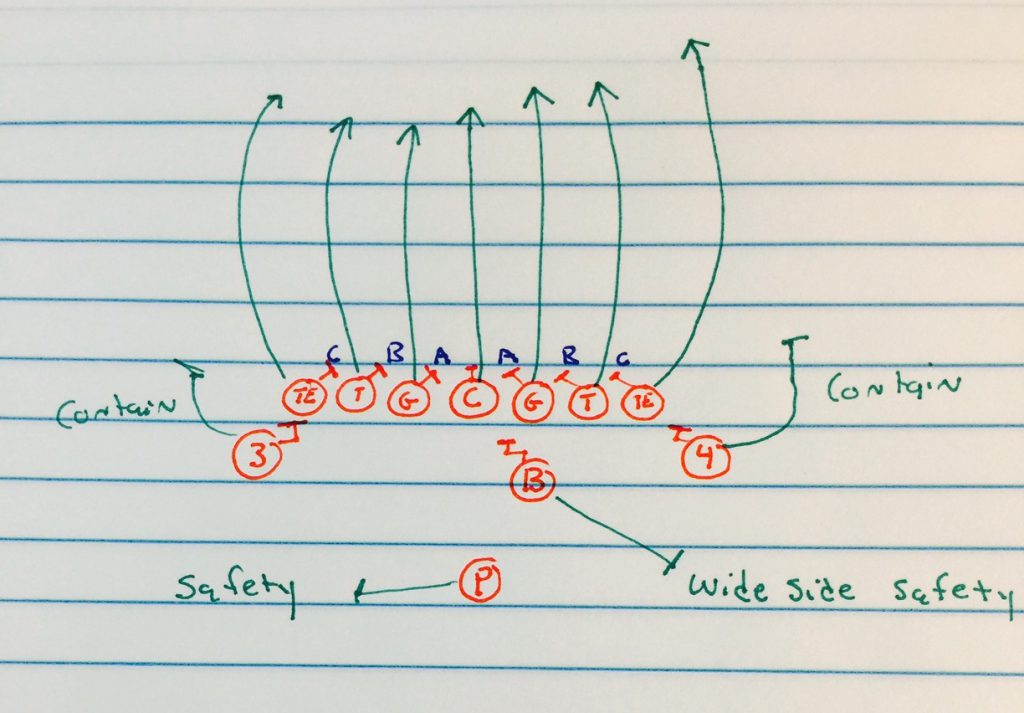 C B A A B C
TE T G C G T TE
Contain
Contain
3
4
B
P
Safety
Wide Side Safety